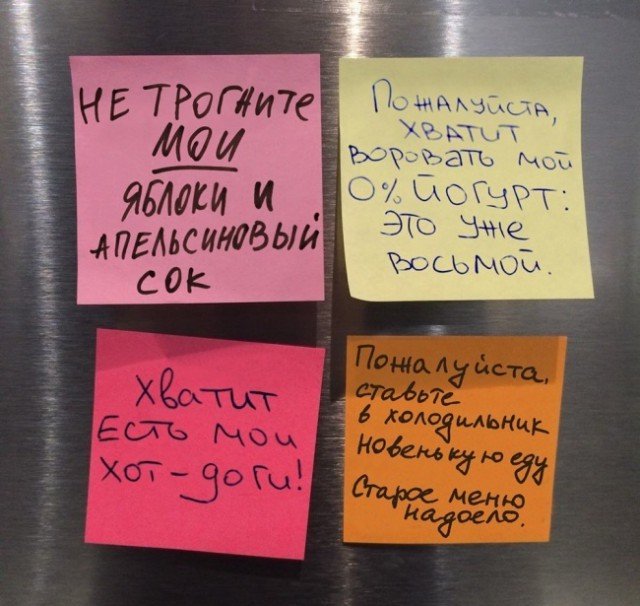 НЕ ТРОГНИТЕ
МОИ
ЯБЛОКИ И
АПЕЛЬСИНОВЫЙ
СОК
ПОЖАЛУЙСТА,
ХВАТИТ
ВОРОВАТЬ МОЙ
0% ЙОГУРТ:
ЭТО УЖЕ
ВОСЬМОЙ.
Хватит
Есть мои
хот-доги!
Пожалуйста,
ставьте
в холодильник
новенькую еду
Старое меню
надоело.